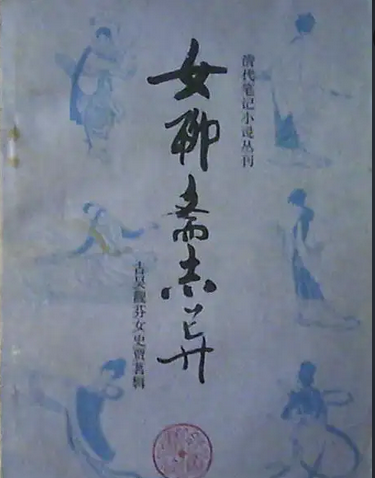 清代笔记小说丛刊
女聊斋志异
古吴靓芬女史贾茗辑